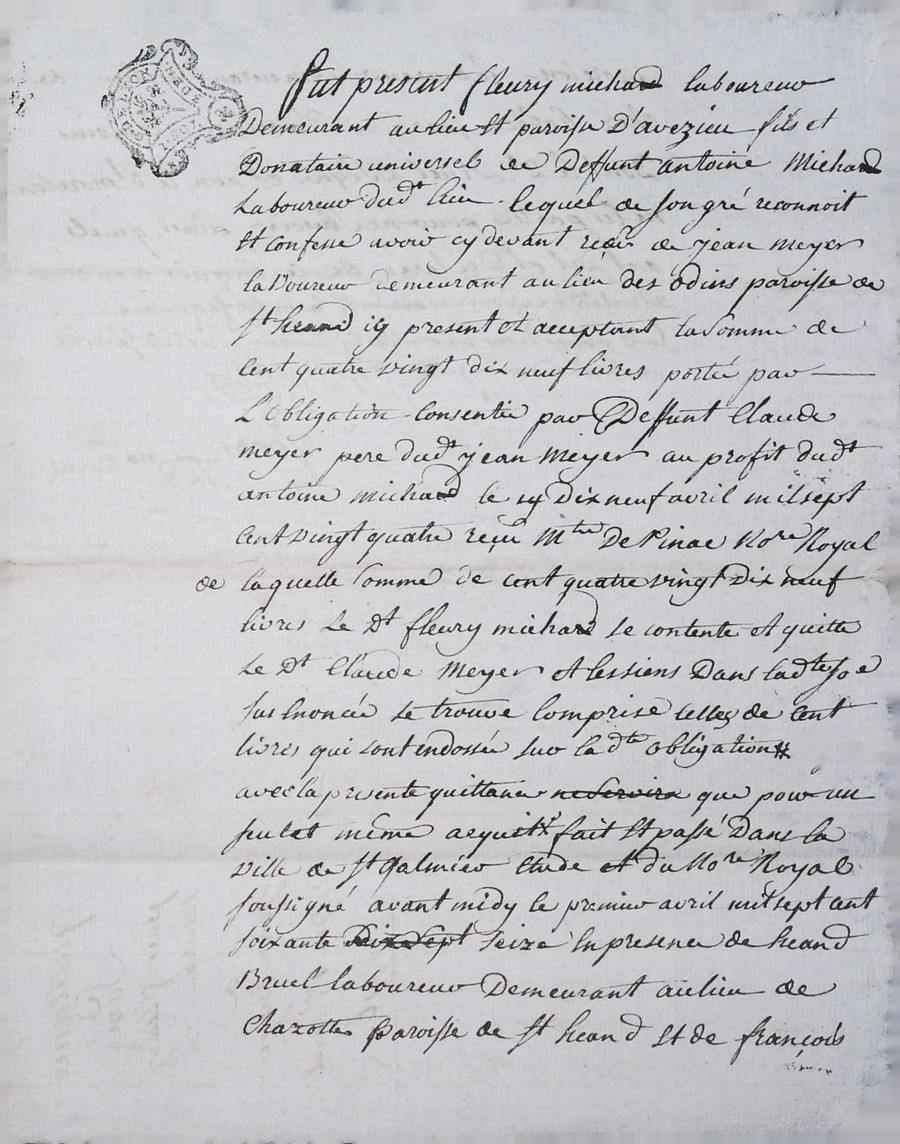 fut present fleury michard laboureur
Demeurant au lieu et paroisse D'avezieu fils et
Donataire universels de Deffunt antoine Michard
Laboureur dudt lieu lequel de son gré reconnoit
et confesse avoir cy devant reçu de jean meyer
laboureur demeurant au lieu des odins paroisse de
st heand icy present et acceptant la somme de
cent quatre vingt dix neuf livres portée par
L'obligation consentie par Deffunt Claude
meyer pere dudt jean meyer au profit dudt
antoine michard le 19 Dix neuf avril mil sept
cent vingt quatre reçu Mtre De Pinac Nore Royal
de laquelle somme de cent quatre vingt dix neuf
livres Le Dt fleury michard se contente et quitte
Le Dt Claude Meyer et les siens Dans ladte soe
sus enoncée se trouve comprise celles de cent
livres qui sont endossée sur la dte obligation #
avec la presente quittance ne servira que pour un
seul et même acquit x fait et passé Dans la
ville de st Galmier etude et du Nore Royal
soussigné avant midy le premier avril mil sept cent
soixante Dix sept seize en presence de heand
Bruel laboureur Demeurant au lieu de
Chazotte paroisse de st heand et de françois